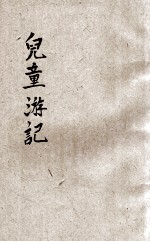 兒童游記